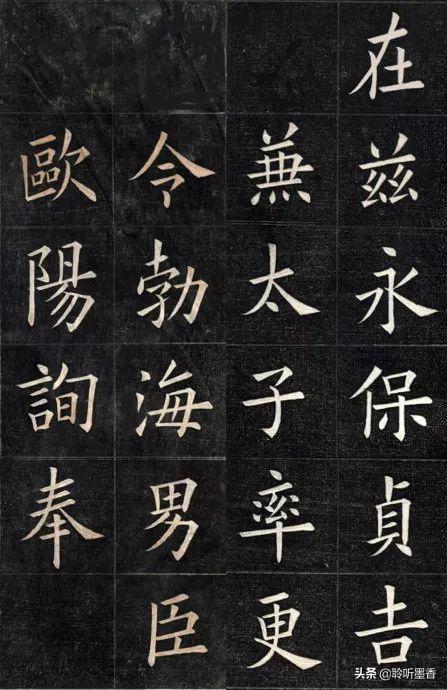 在兹永保貞吉
蕪太子率更
令勃海男臣
歐陽詢奉
头条 @聆听墨香